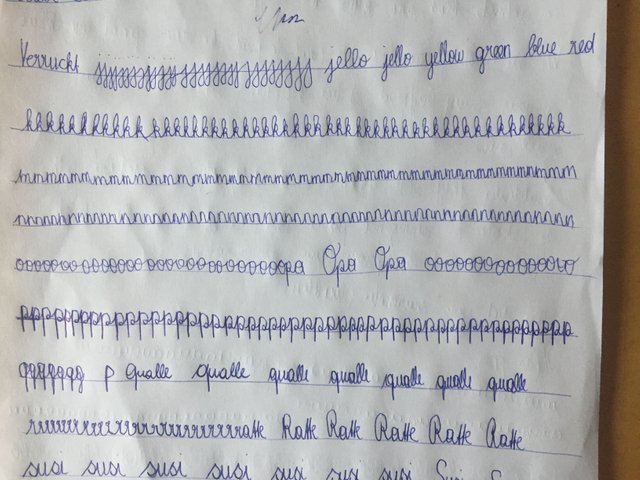 Verruckt jjjjjjjjjjjjjjjjjjjjjj jello jello yellow green blue red
kkkkkkkkkkkkkkkkkkkkkkkkkkkkkkkkkkkkkkkk
mmmmmmmmmmmmmmmmmmmmmmmmmmmmm
nnnnnnnnnnnnnnnnnnnnnnnnnnnnnnnnnnnnn
oooooooooooooooooooooooopa Opa Opa ooooooooooooooo
pppppppppppppppppppppppppppppppppppppppp
qqqqqqqq p Qualle qualle qualle qualle qualle qualle qualle
rrrrrrrrrrrrrrrrrrrrrrratte Ratte Ratte Ratte Ratte Ratte
susi susi susi susi susi susi susi